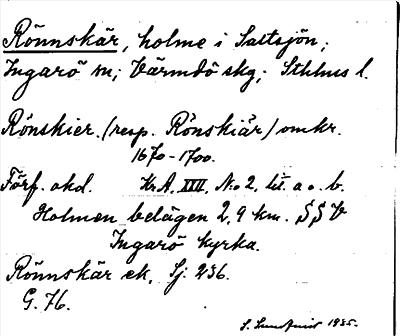 Rönnskär, holme i Saltsjön;
Ingarö sn; Värmdö skg; Sthlms l.
Rönskier (resp. Rönskiär) omkr.
1670-1700.
Förf. okd. Kr.A. XXII, No 2, lit. a o. b.
Holmen belägen 2,9 km. SSV
Ingarö kyrka.
Rönnskär ek. Sj. 236.
G. 76.
S. Lundqvist 1935.